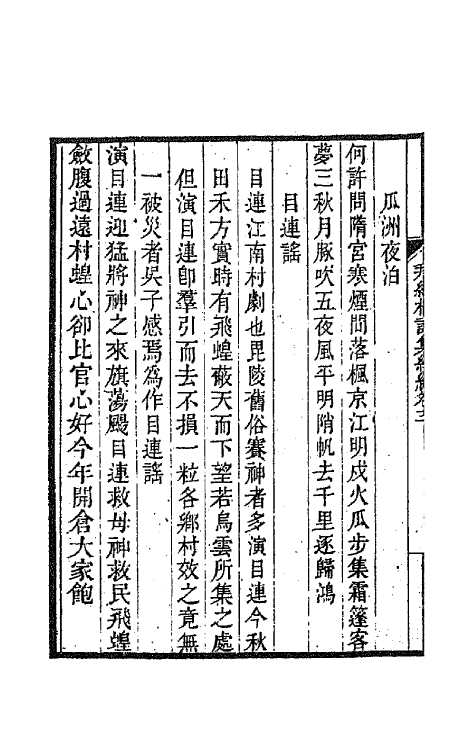 瓜洲夜泊
何許問隋宮寒煙問落楓京江明戍火瓜步集霜篷客
夢三秋月豚吹五夜風平明附帆去千里逐歸鴻
目連謠
目連江南村劇也毘陵舊俗賽神者多演目連今秋
田禾方實時有飛蝗蔽天而下望若烏雲所集之處
但演目連卽羣引而去不損一粒各鄉村效之竟無
一被災者吳子感焉爲作目連謠
演目連迎猛將神之來旗蕩颺目連救母神救民飛蝗
斂腹過遠村蝗心卻比官心好今年開倉大家飽